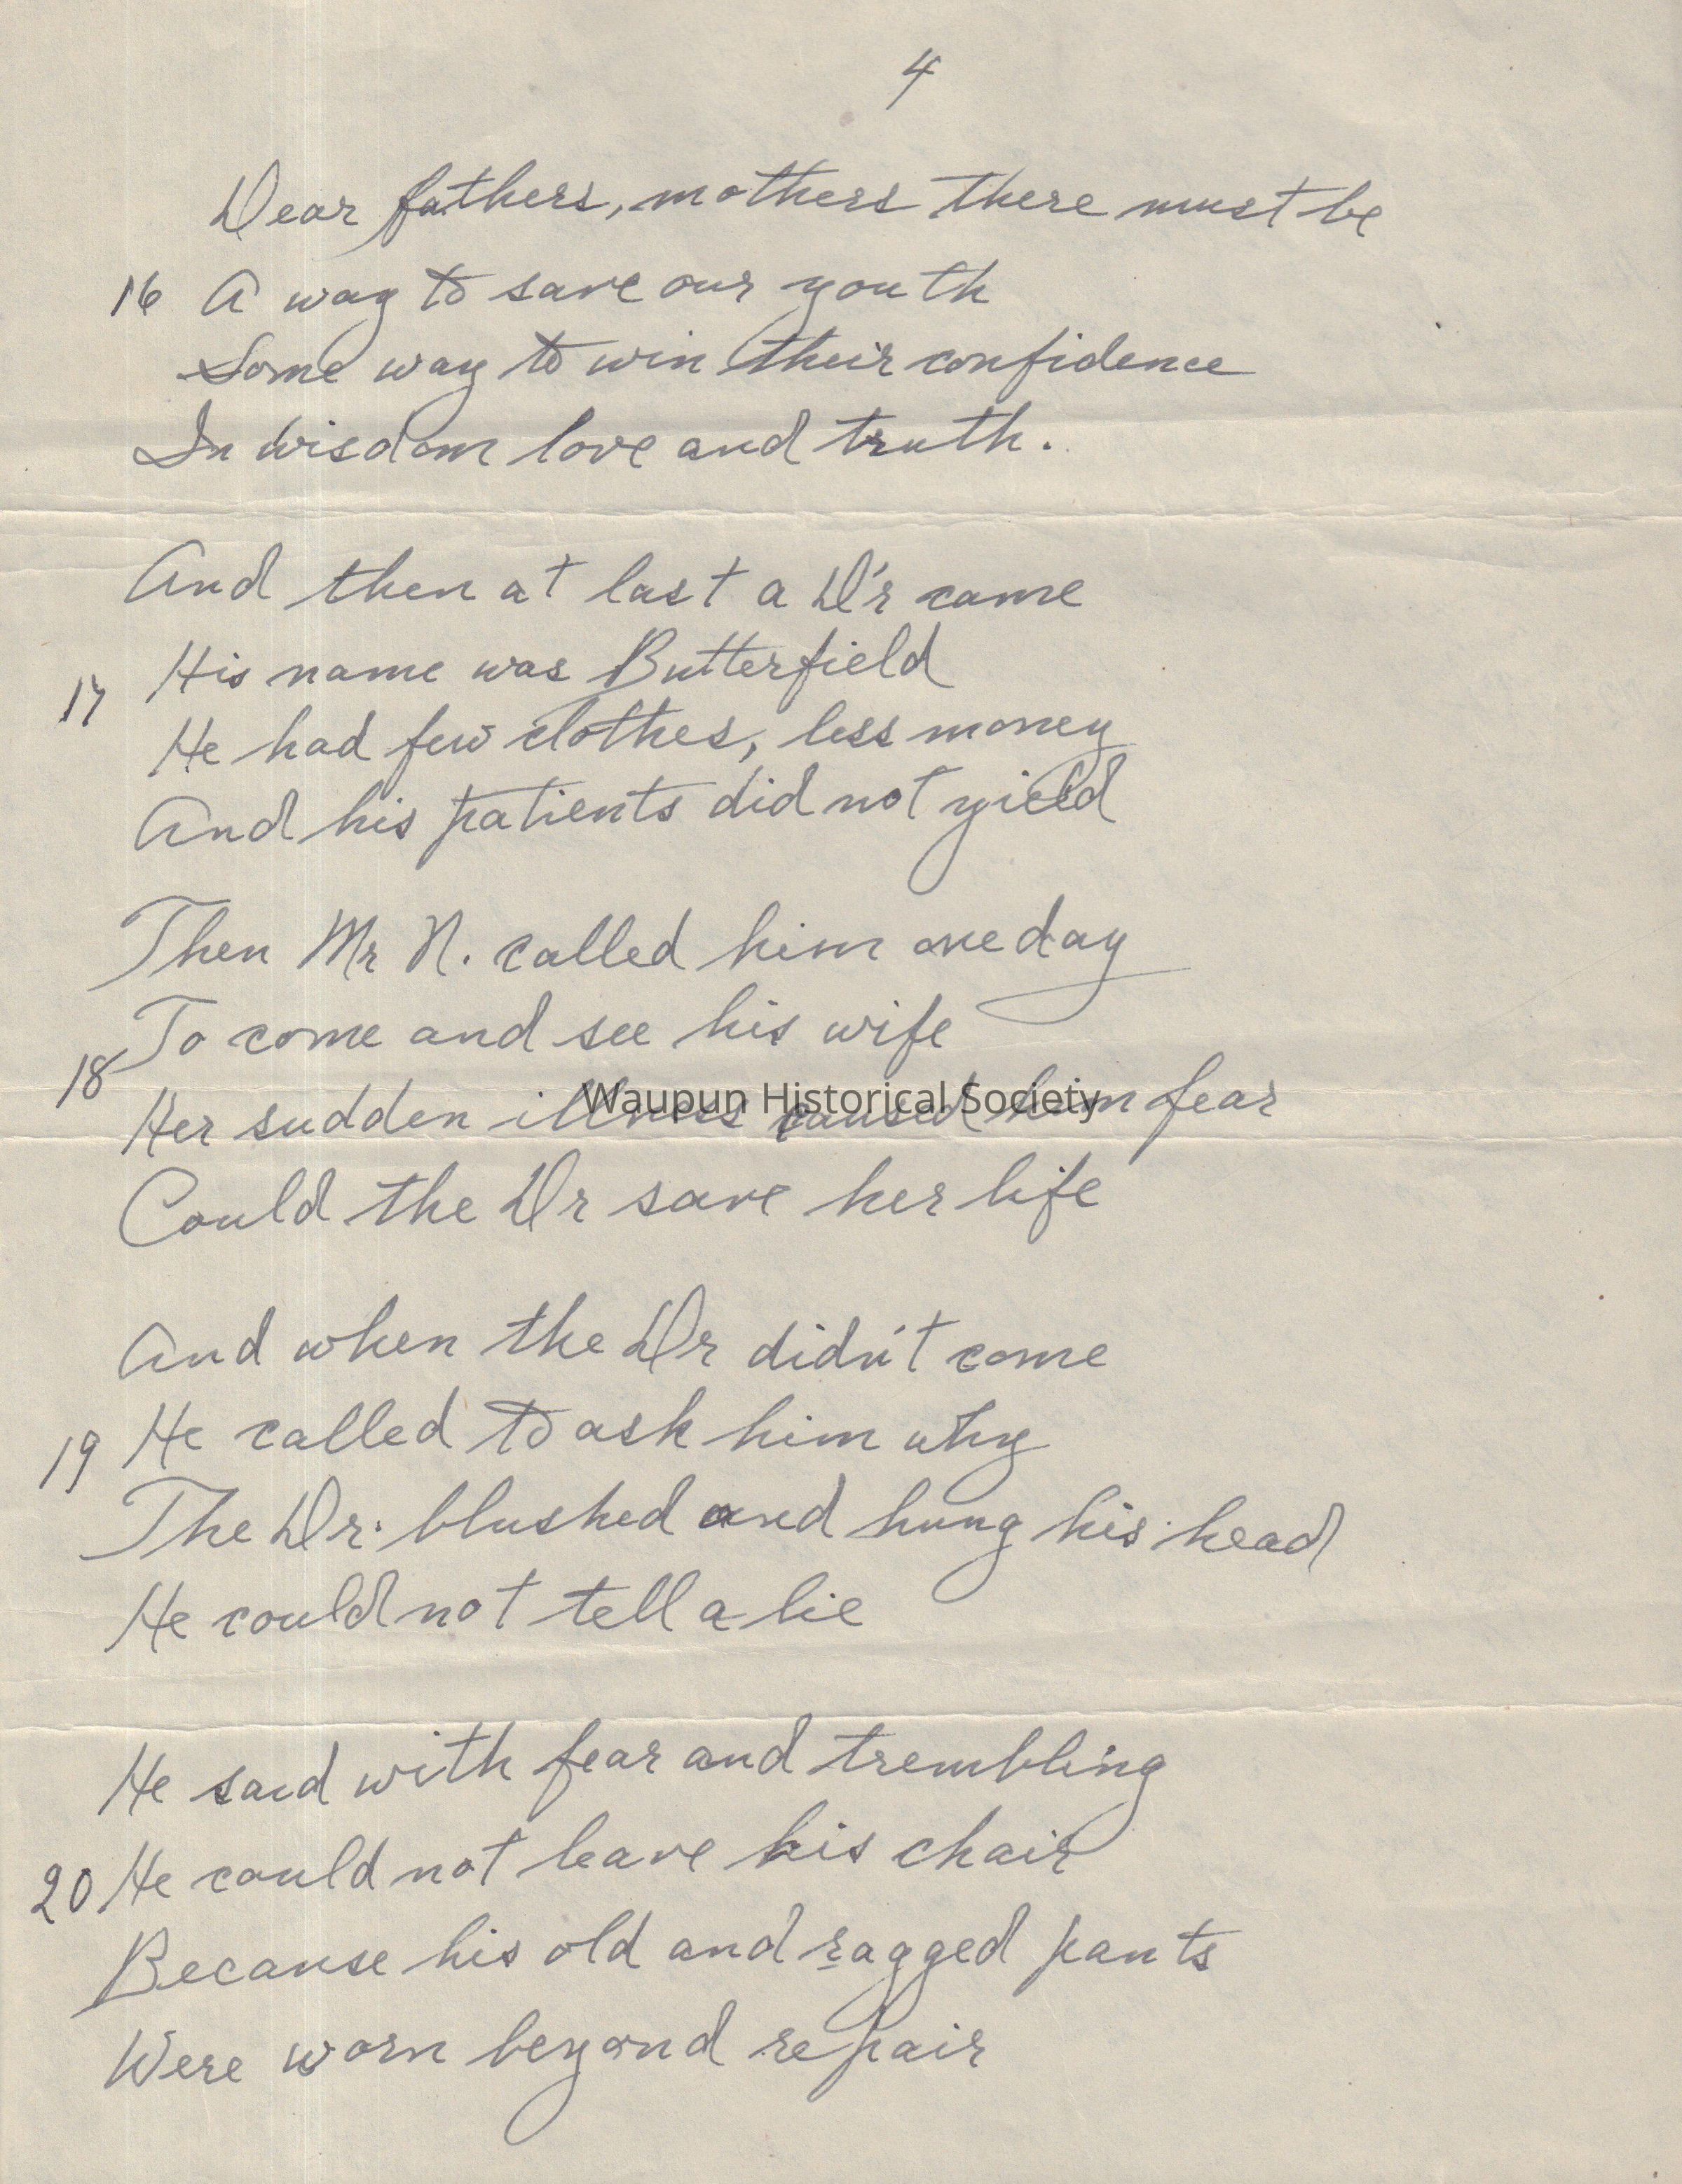 4
Dear fathers, mothers there must be
16 A way to save our youth
Some way to win their confidence
In wisdom love and truth.
And then at last a D'r came
17 His name was Butterfield
He had few clothes, less money
And his patients did not yield
Then Mr N. called him one day
18 To come and see his wife
Her sudden illness caused him fear
Waupun Historical Society
Could the Dr save her life
And when the Dr didn't come
19 He called to ask him why
The Dr. blushed and hung his head
He could not tell a lie
He said with fear and trembling
20 He could not leave his chair
Because his old and ragged pants
Were worn beyond repair